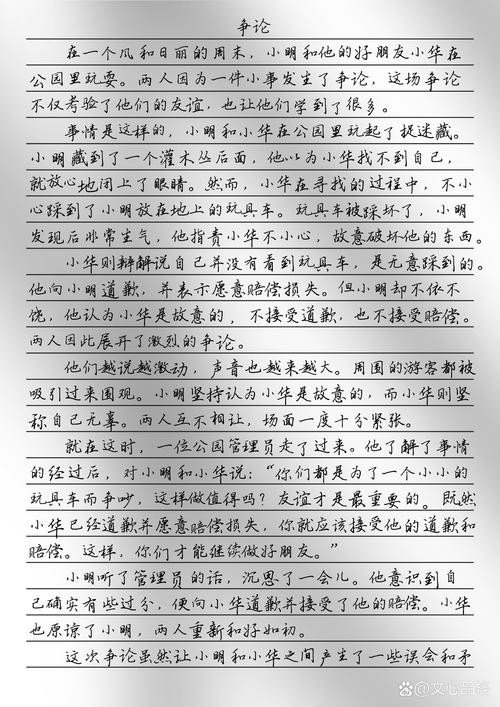 争论
在一个风和日丽的周末，小明和他的好朋友小华在
公园里玩耍。两人因为一件小事发生了争论，这场争论
不仅考验了他们的友谊，也让他们学到了很多。
事情是这样的，小明和小华在公园里玩起了捉迷藏。
小明藏到了一个灌木丛后面，他以为小华找不到自己，
就放心地闭上了眼睛。然而，小华在寻找的过程中，不小
心踩到了小明放在地上的玩具车。玩具车被踩坏了，小明
发现后非常生气，他指责小华不小心，故意破坏他的东西。
小华则辩解说自己并没有看到玩具车，是无意踩到的。
他向小明道歉，并表示愿意赔偿损失。但小明却不依不
饶，他认为小华是故意的，不接受道歉，也不接受赔偿。
两人因此展开了激烈的争论。
他们越说越激动，声音也越来越大。周围的游客都被
吸引过来围观。小明坚持认为小华是故意的，而小华则坚
称自己无辜。两人互不相让，场面一度十分紧张。
就在这时，一位公园管理员走了过来。他了解了事情
的经过后，对小明和小华说：“你们都是为了一个小小的
玩具车而争吵，这样做值得吗？友谊才是最重要的。既然
小华已经道歉并愿意赔偿损失，你就应该接受他的道歉和
赔偿。这样，你们才能继续做好朋友。”
小明听了管理员的话，沉思了一会儿。他意识到自
己确实有些过分，便向小华道歉并接受了他的赔偿。小华
也原谅了小明，两人重新和好如初。
这次争论虽然让小明和小华之间产生了一些误会和矛
Baidu文心品铃